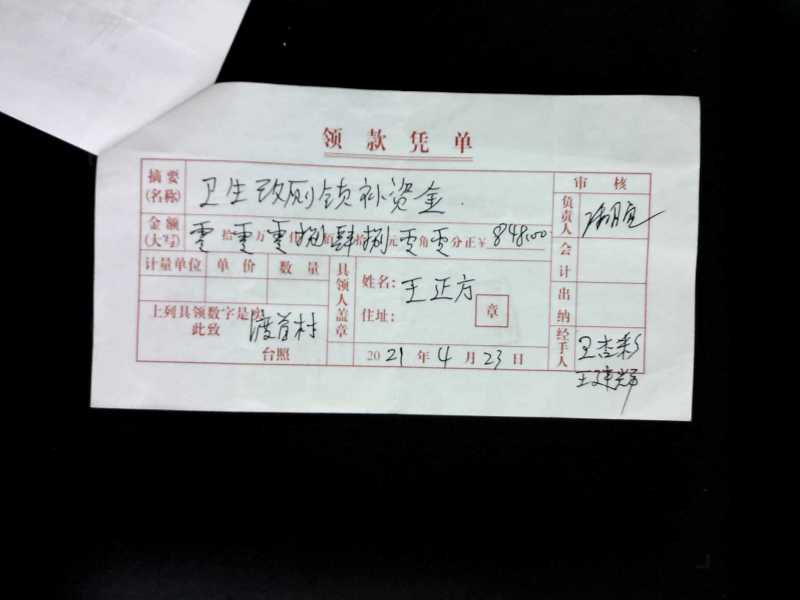 领款凭单
摘要(名称) 卫生改厕领补资金 审核
金额(大写) 零拾零万零仟捌佰肆拾捌元零角零分正¥848.00 负责人
计量单位 单价 数量 具领人盖章 姓名: 王正方 会计
住址: 章 出纳
上列具领数字是实
此致
台照 2021年4月23日 经手人 王杏彩
王建辉